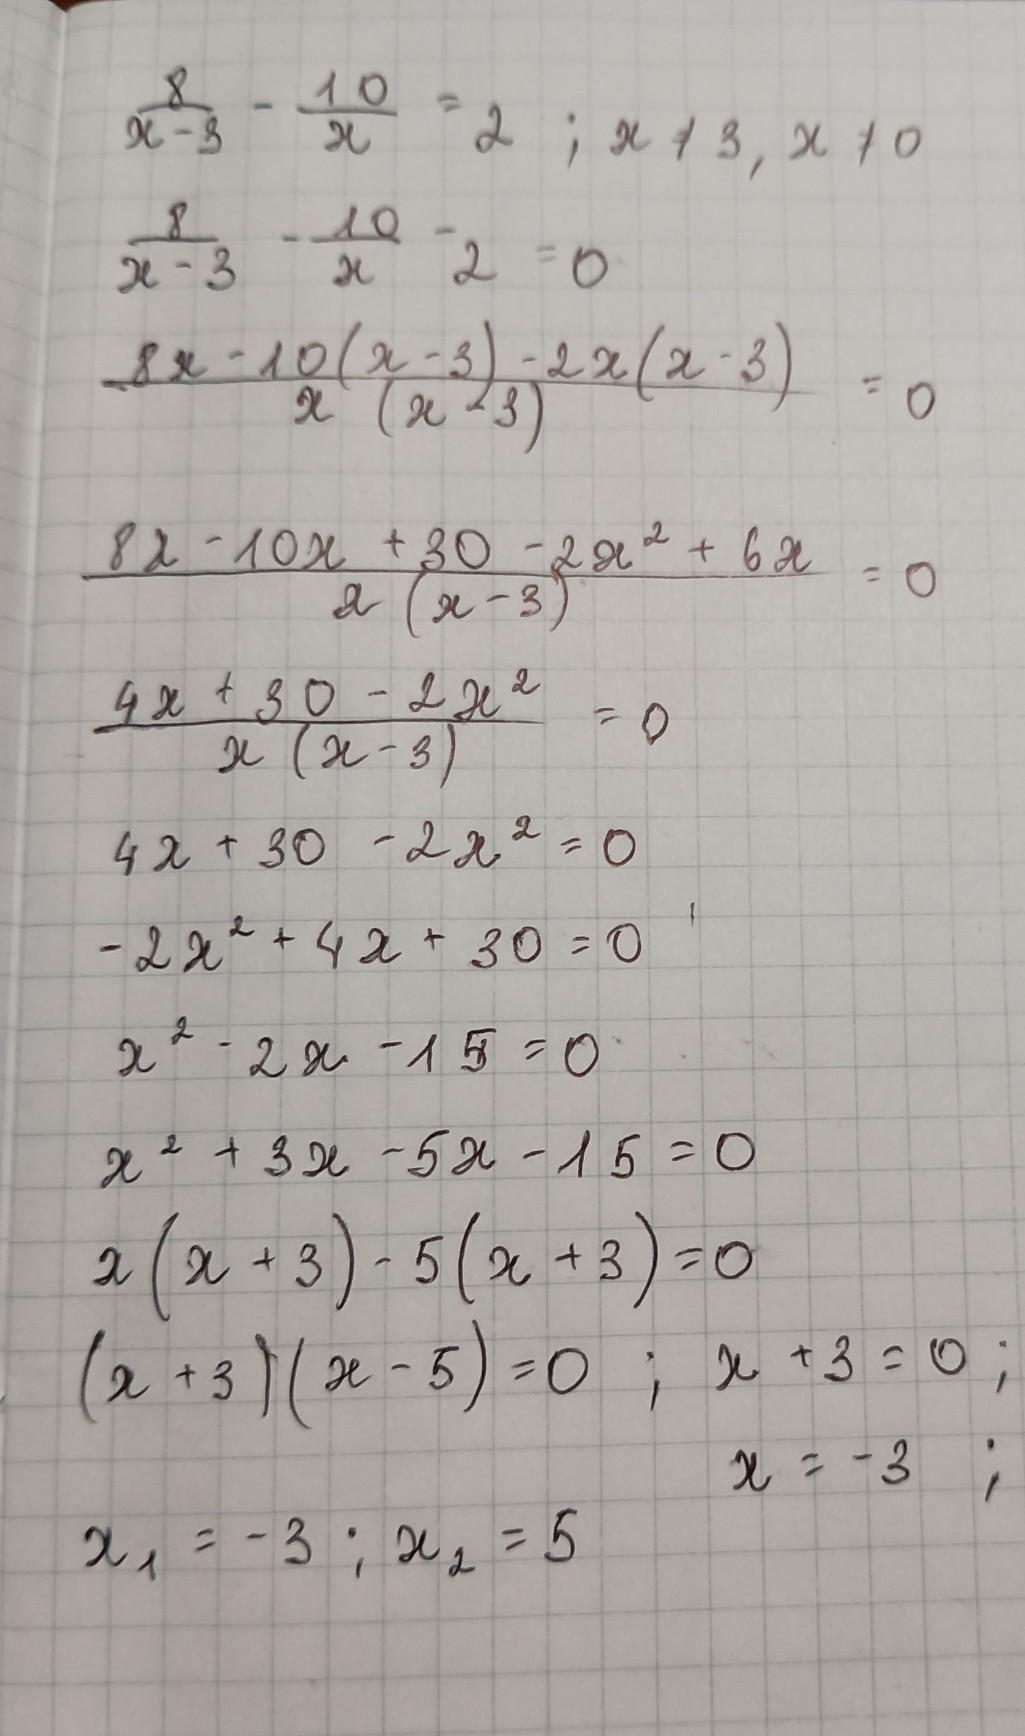 8/(x-3) - 10/x = 2 ; x ≠ 3, x ≠ 0
8/(x-3) - 10/x - 2 = 0
(8x - 10(x-3) - 2x(x-3))/(x(x-3)) = 0
(8x - 10x + 30 - 2x² + 6x)/(x(x-3)) = 0
(4x + 30 - 2x²)/(x(x-3)) = 0
4x + 30 - 2x² = 0
-2x² + 4x + 30 = 0
x² - 2x - 15 = 0
x² + 3x - 5x - 15 = 0
x(x+3) - 5(x+3) = 0
(x+3)(x-5) = 0 ; x + 3 = 0 ;
x = -3 ;
x₁ = -3 ; x₂ = 5